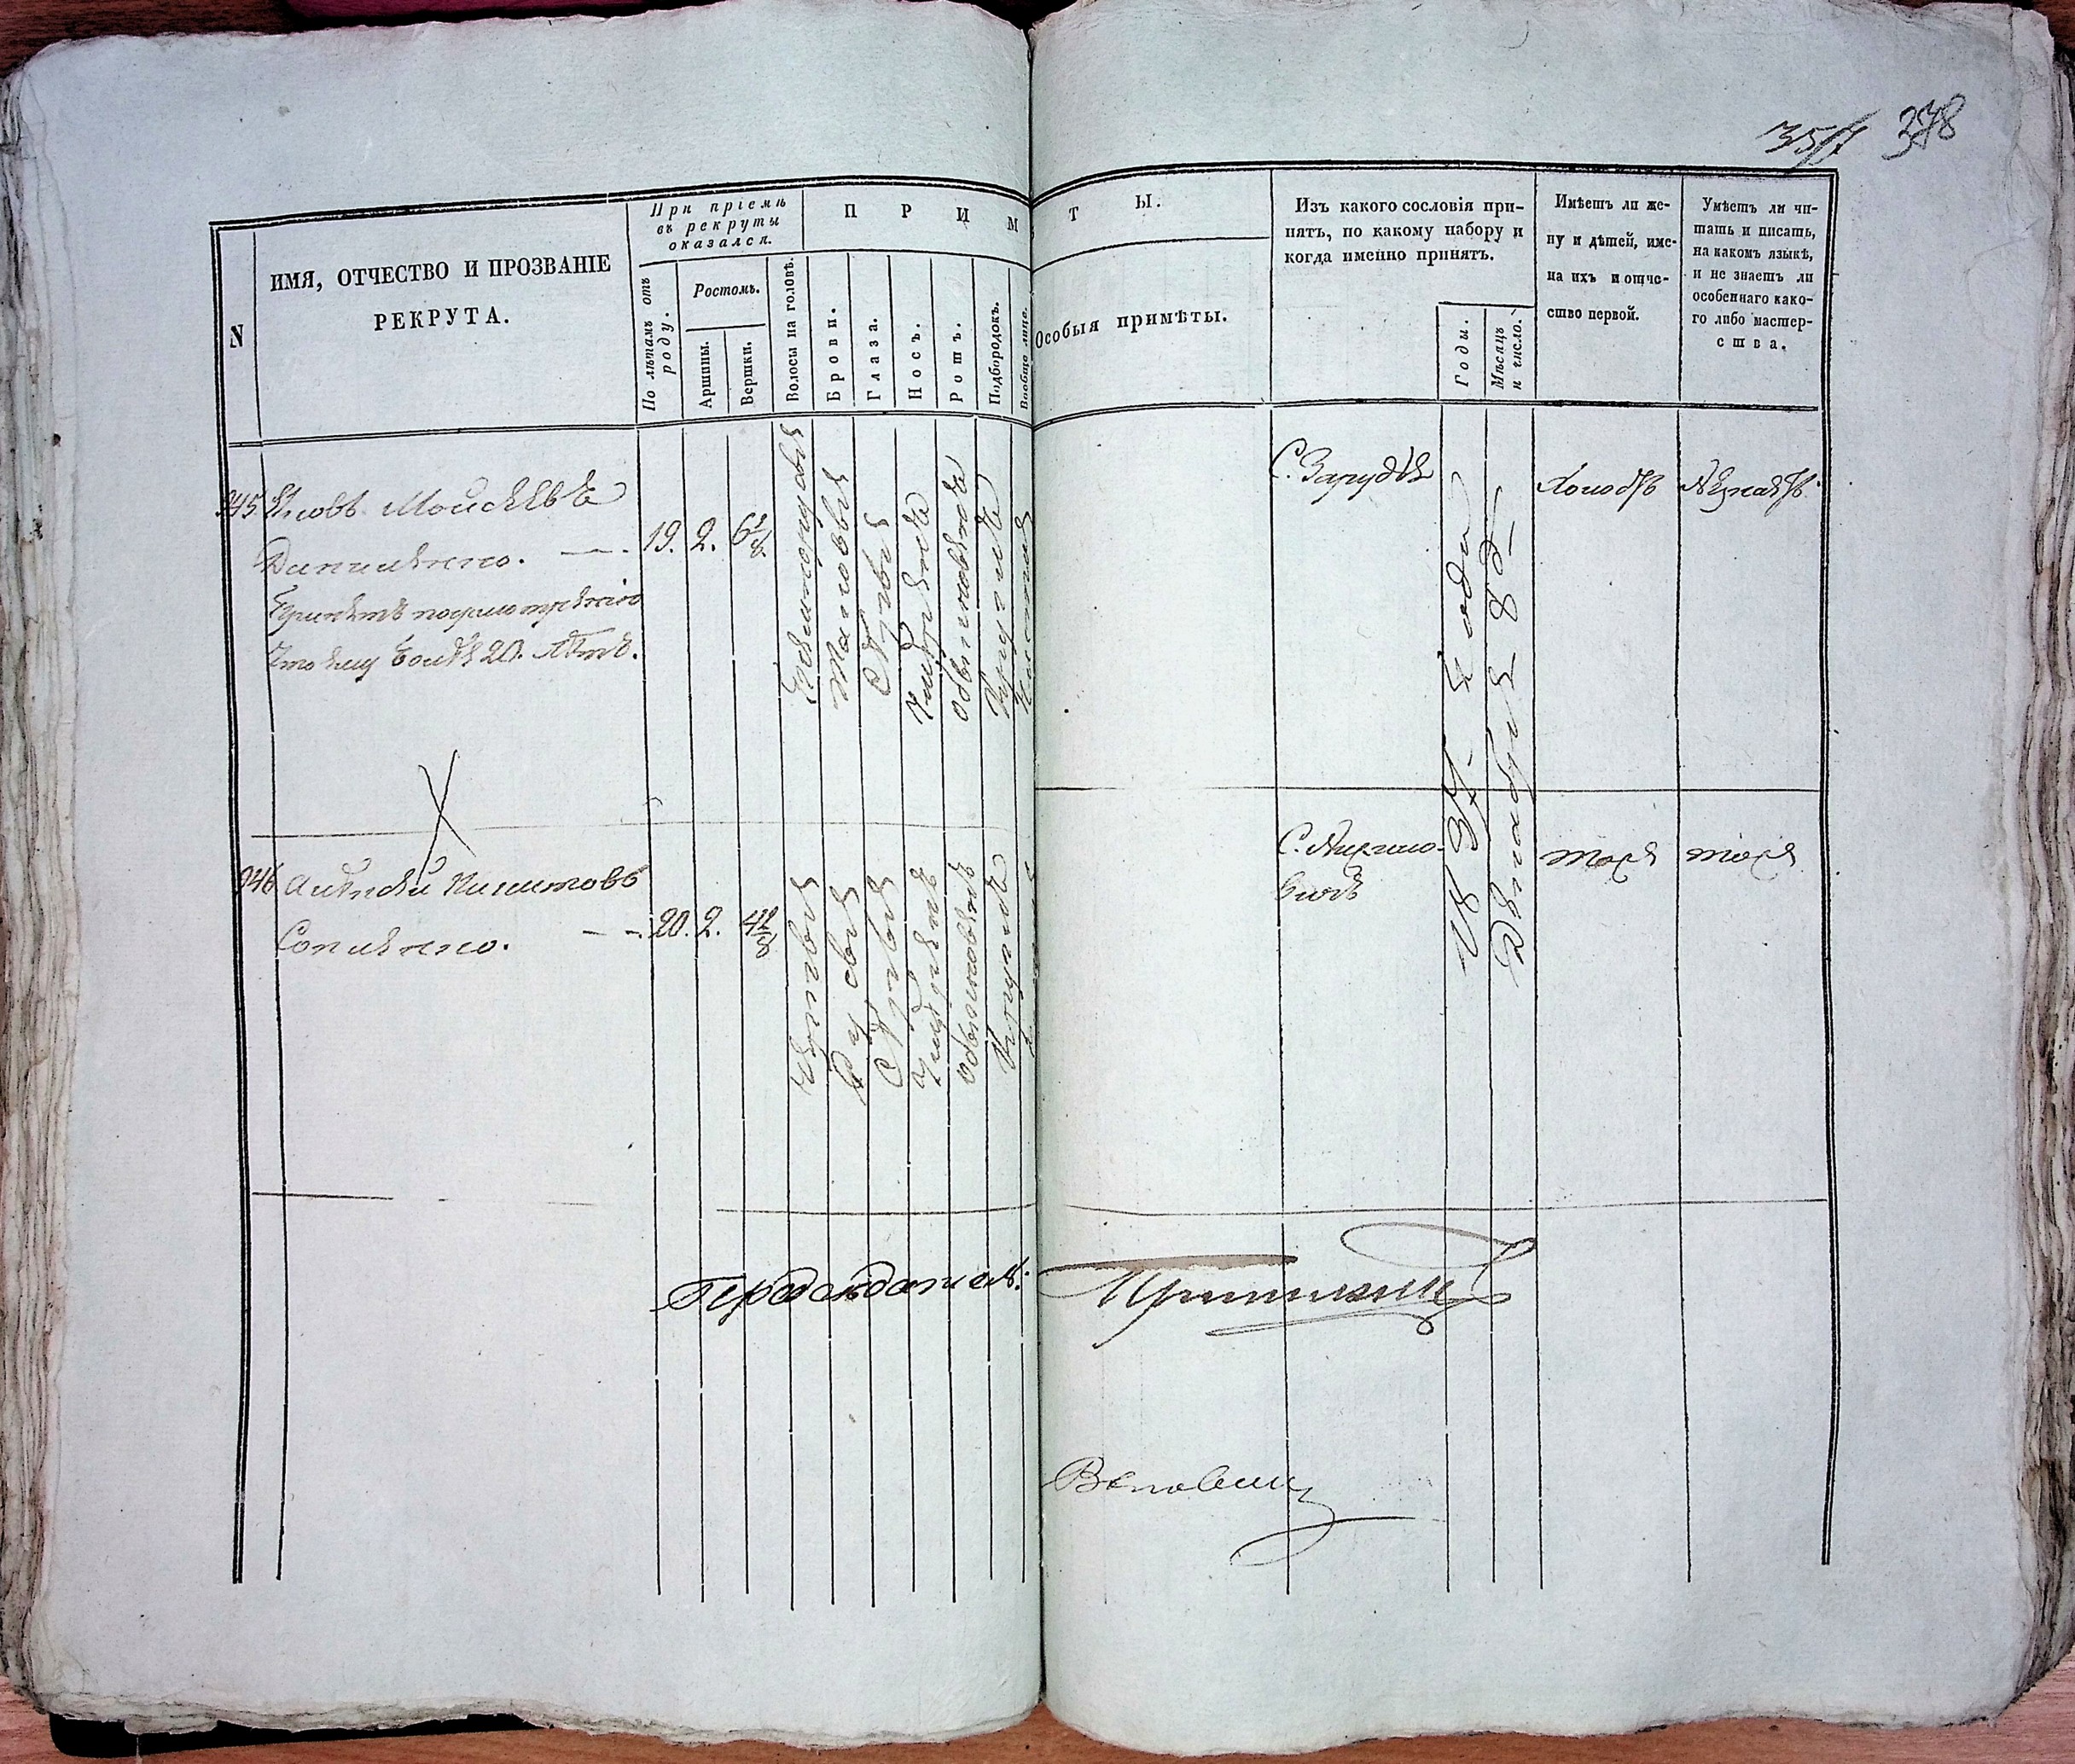 378
N
ИМЯ, ОТЧЕСТВО И ПРОЗВАНІЕ
РЕКРУТА.
При пріемѣ
въ рекруты
оказался.
По лѣтамъ отъ
роду.
Ростомъ.
Аршины.
Вершки.
П Р И М Ѣ Т Ы.
Волосы на головѣ.
Брови.
Глаза.
Носъ.
Ротъ.
Подбородокъ.
Вообще лице.
Особыя примѣты.
Изъ какого сословія при-
нятъ, по какому набору и
когда именно принятъ.
Годы.
Мѣсяцъ
и число.
Имѣетъ ли же-
ну и дѣтей, име-
на ихъ и отче-
ство первой.
Умѣетъ ли чи-
тать и писать,
на какомъ языкѣ,
и не знаетъ ли
особеннаго како-
го либо мастер-
ства.
945 Яковъ Моисѣевъ
Даниленко.
19. 2. 6 2/8.
что ему болѣе 20. лѣтъ.
Темнорусыя
Таковыя
Сѣрыя
Умѣренной
обыкновенной
Круглой
С. Зарудья
1837 года
Декабря 8
Холостъ
Незнаетъ
946 Алексѣй Никитовъ
Сопиленко.
20. 2. 4 2/8
Русыя
Сѣрыя
Умѣренной
обыкновенной
Круглой
тоже
тоже
Предсѣдатель: